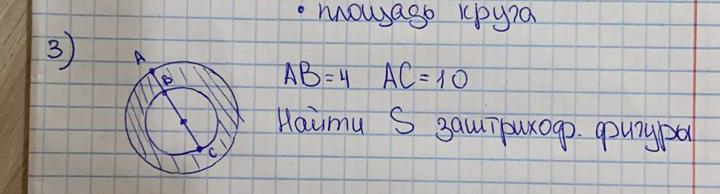 • площадь круга
3)
A
B
C
AB=4 AC=10
Найти S заштрихоф. фигуры